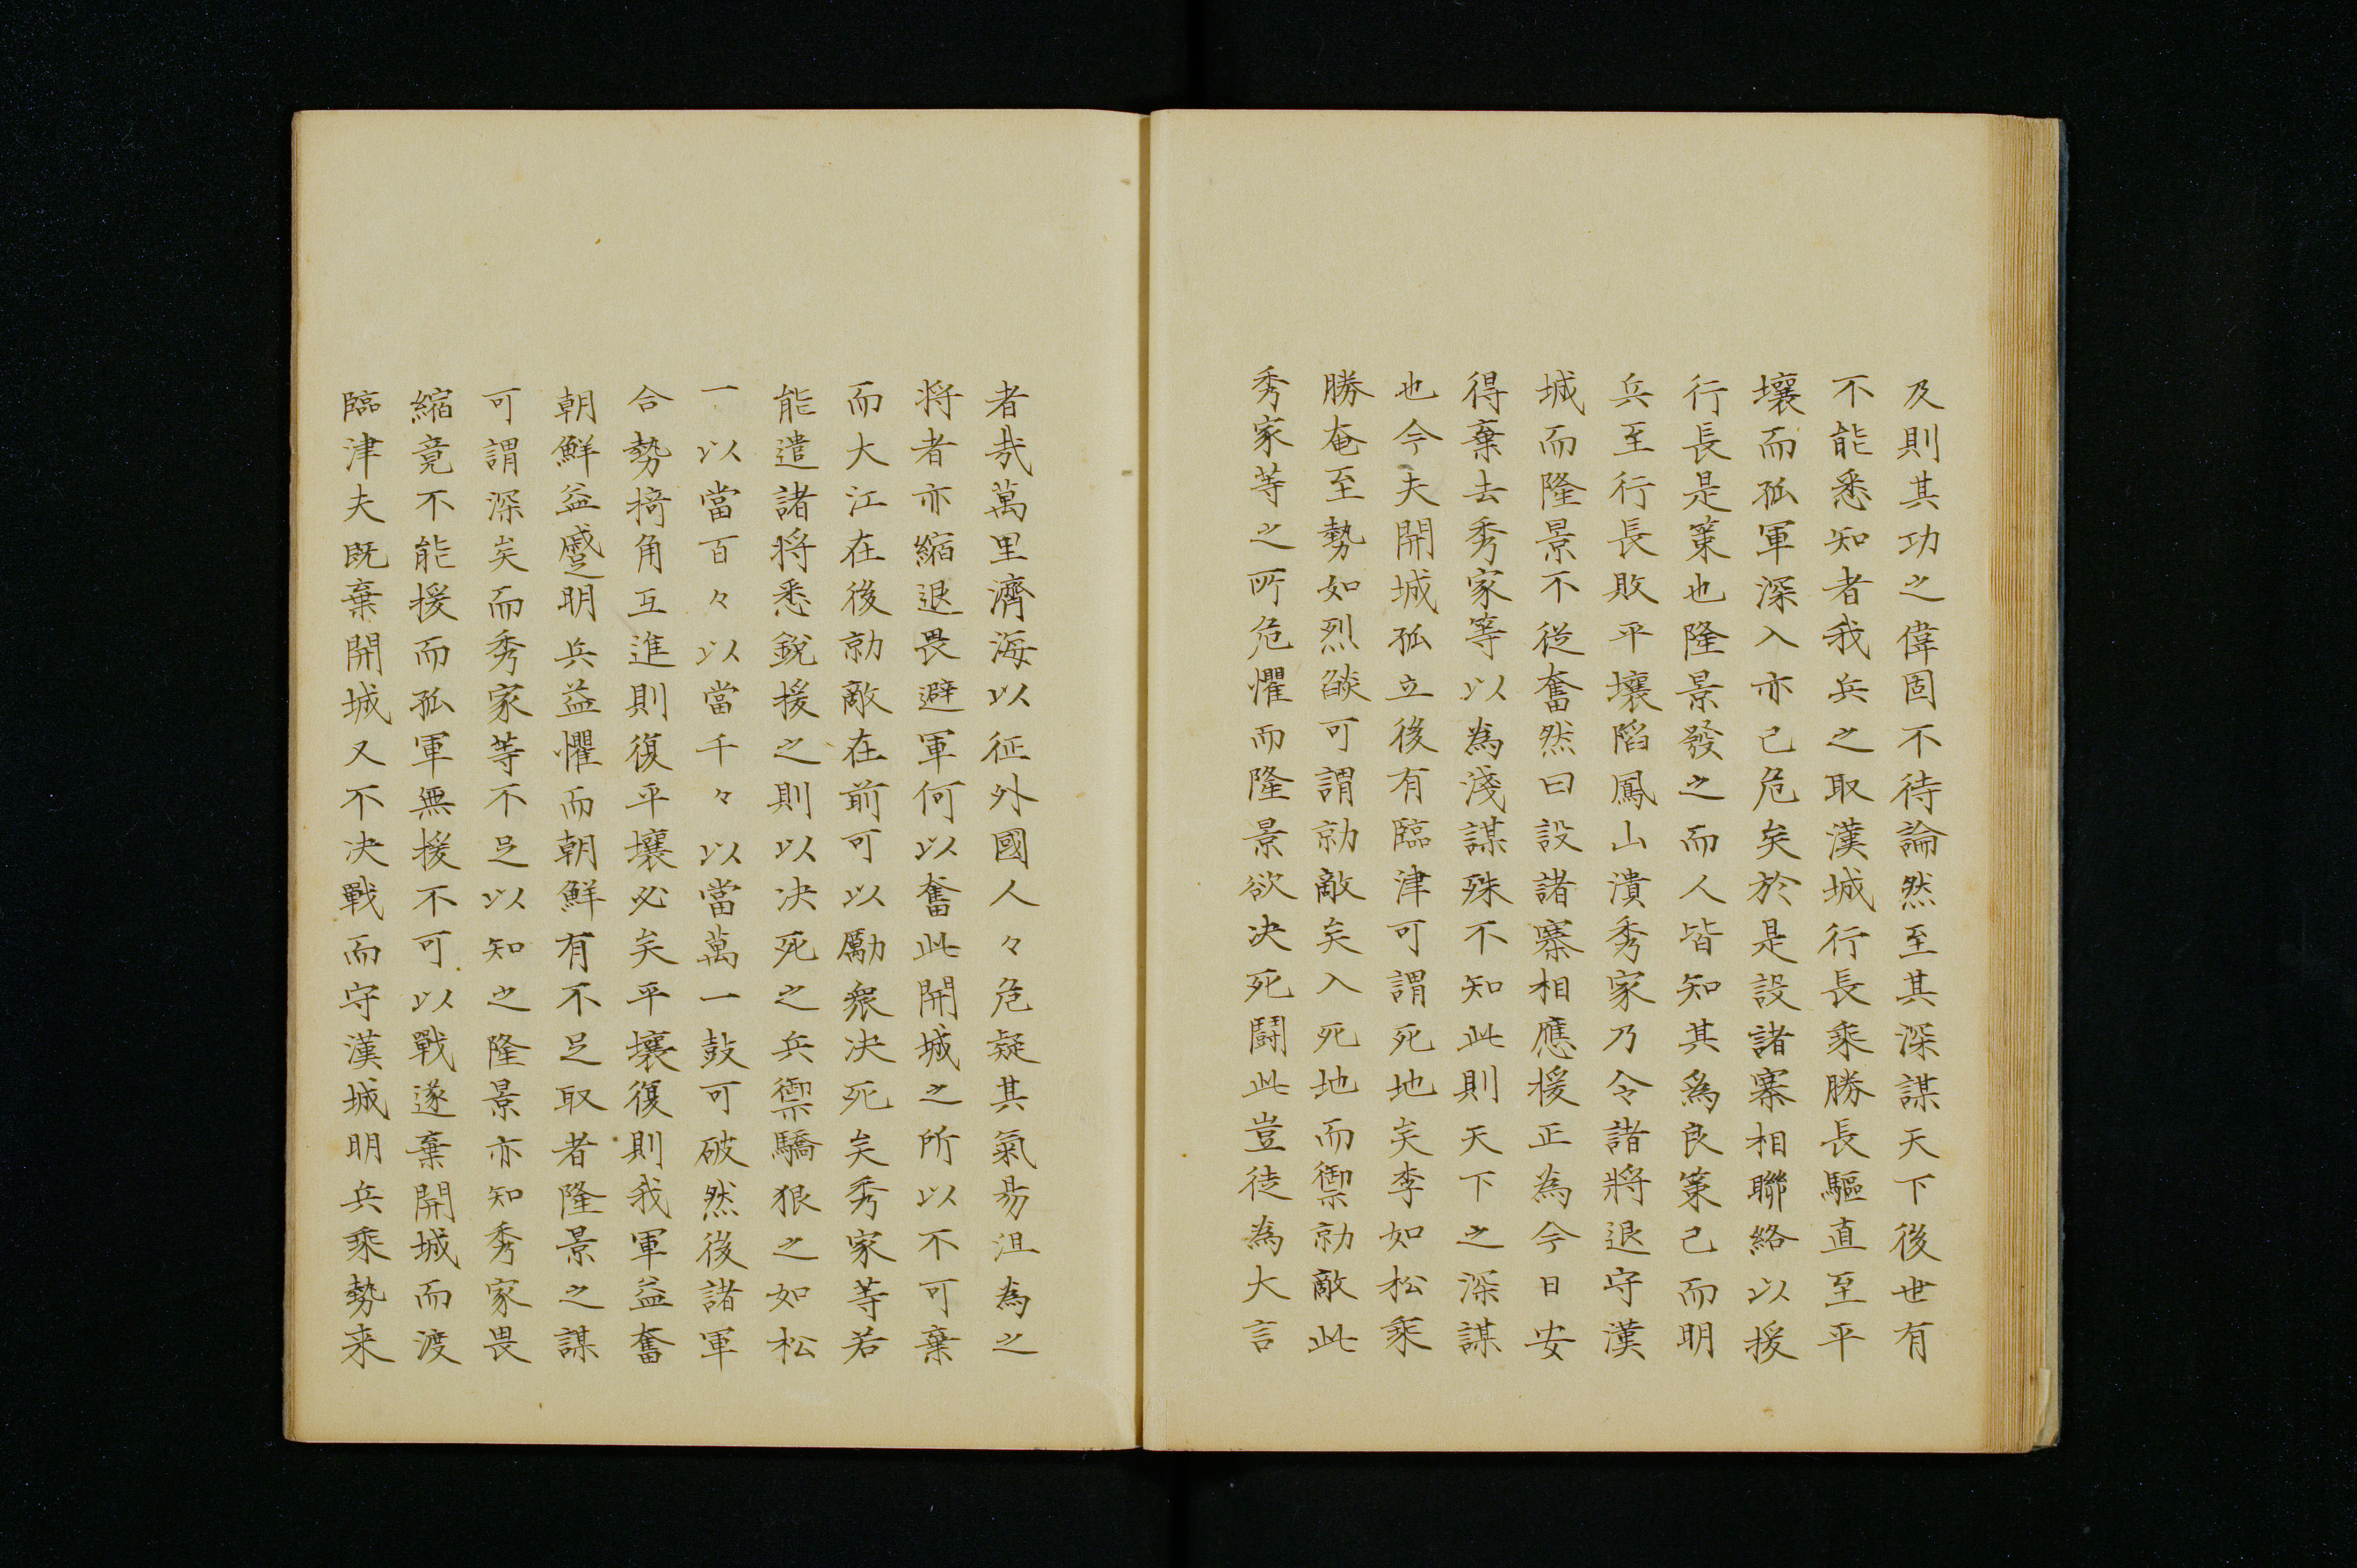 及則其功之偉固不待論然至其深謀天下後世有
不能悉知者我兵之取漢城行長乘勝長驅直至平
壤而孤軍深入亦已危矣於是設諸寨相聯絡以援
行長是策也隆景發之而人皆知其爲良策已而明
兵至行長敗平壤陷鳳山潰秀家乃令諸將退守漢
城而隆景不從奮然曰設諸寨相應援正為今日安
得棄去秀家等以為淺謀殊不知此則天下之深謀
也今夫開城孤立後有臨津可謂死地矣李如松乘
勝奄至勢如烈燄可謂勍敵矣入死地而禦勍敵此
秀家等之所危懼而隆景欲决死鬪此豈徒為大言
者哉萬里濟海以征外國人々危疑其氣易沮為之
将者亦縮退畏避軍何以奮此開城之所以不可棄
而大江在後勍敵在前可以勵衆决死矣秀家等若
能遣諸将悉銳援之則以决死之兵禦驕狠之如松
一以當百々以當千々以當萬一鼓可破然後諸軍
合勢掎角互進則復平壤必矣平壤復則我軍益奮
朝鮮益蹙明兵益懼而朝鮮有不足取者隆景之謀
可謂深矣而秀家等不足以知之隆景亦知秀家畏
縮竟不能援而孤軍無援不可以戰遂棄開城而渡
臨津夫既棄開城又不决戰而守漢城明兵乘勢来